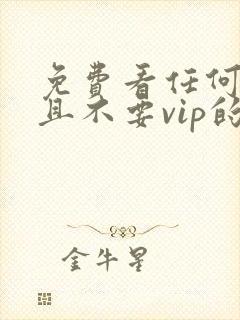 免费看任何
且不要vip的
金牛星